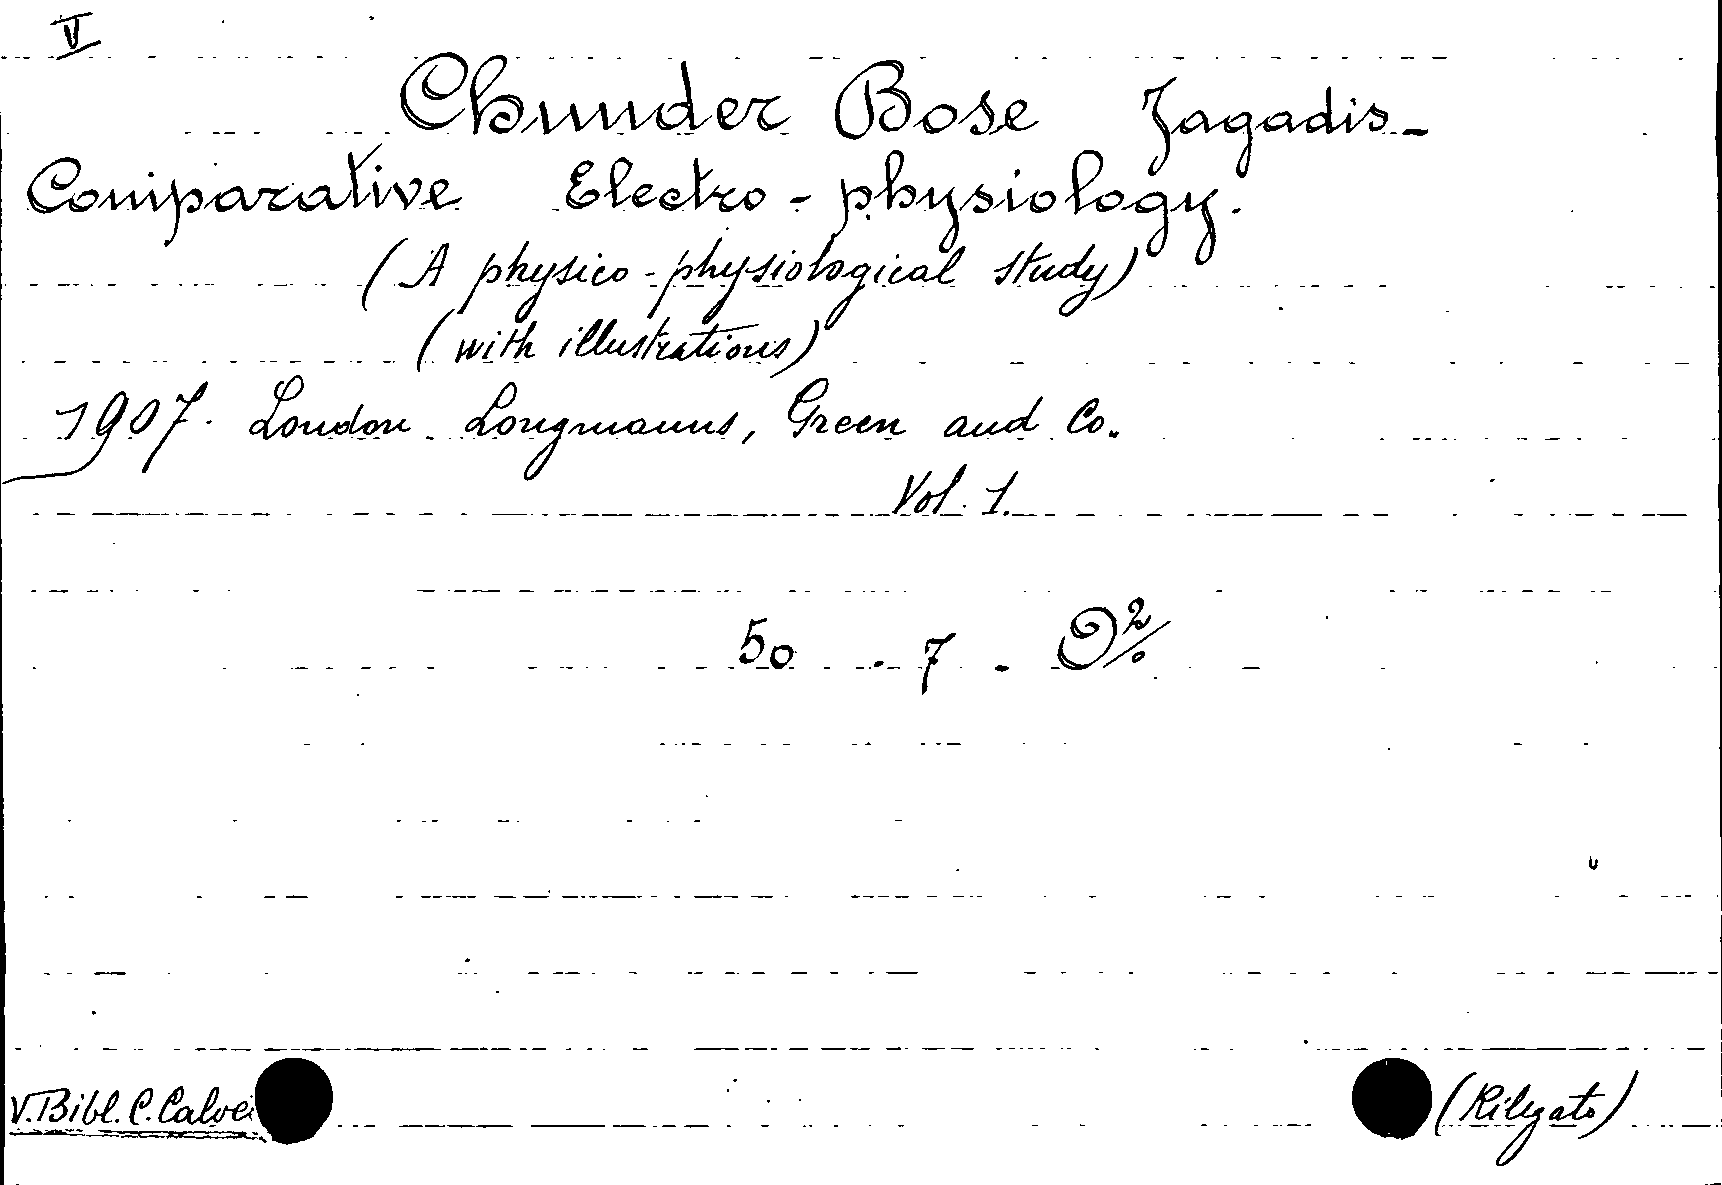 V
Chunder Bose Jagadis-
Comparative Electro-physiology.
(A physico-physiological study)
(with illustrations)
1907. London. Longmanns, Green and Co.
Vol. 1.
50 . 7 .
V. Bibl. C.
(Rilegato)